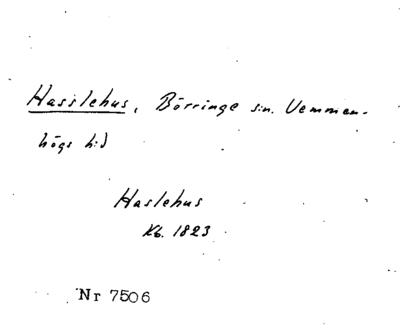 Hasslehus, Börringe sn. Vemmen-
högs hd
Haslehus
Kb. 1823
Nr 7506